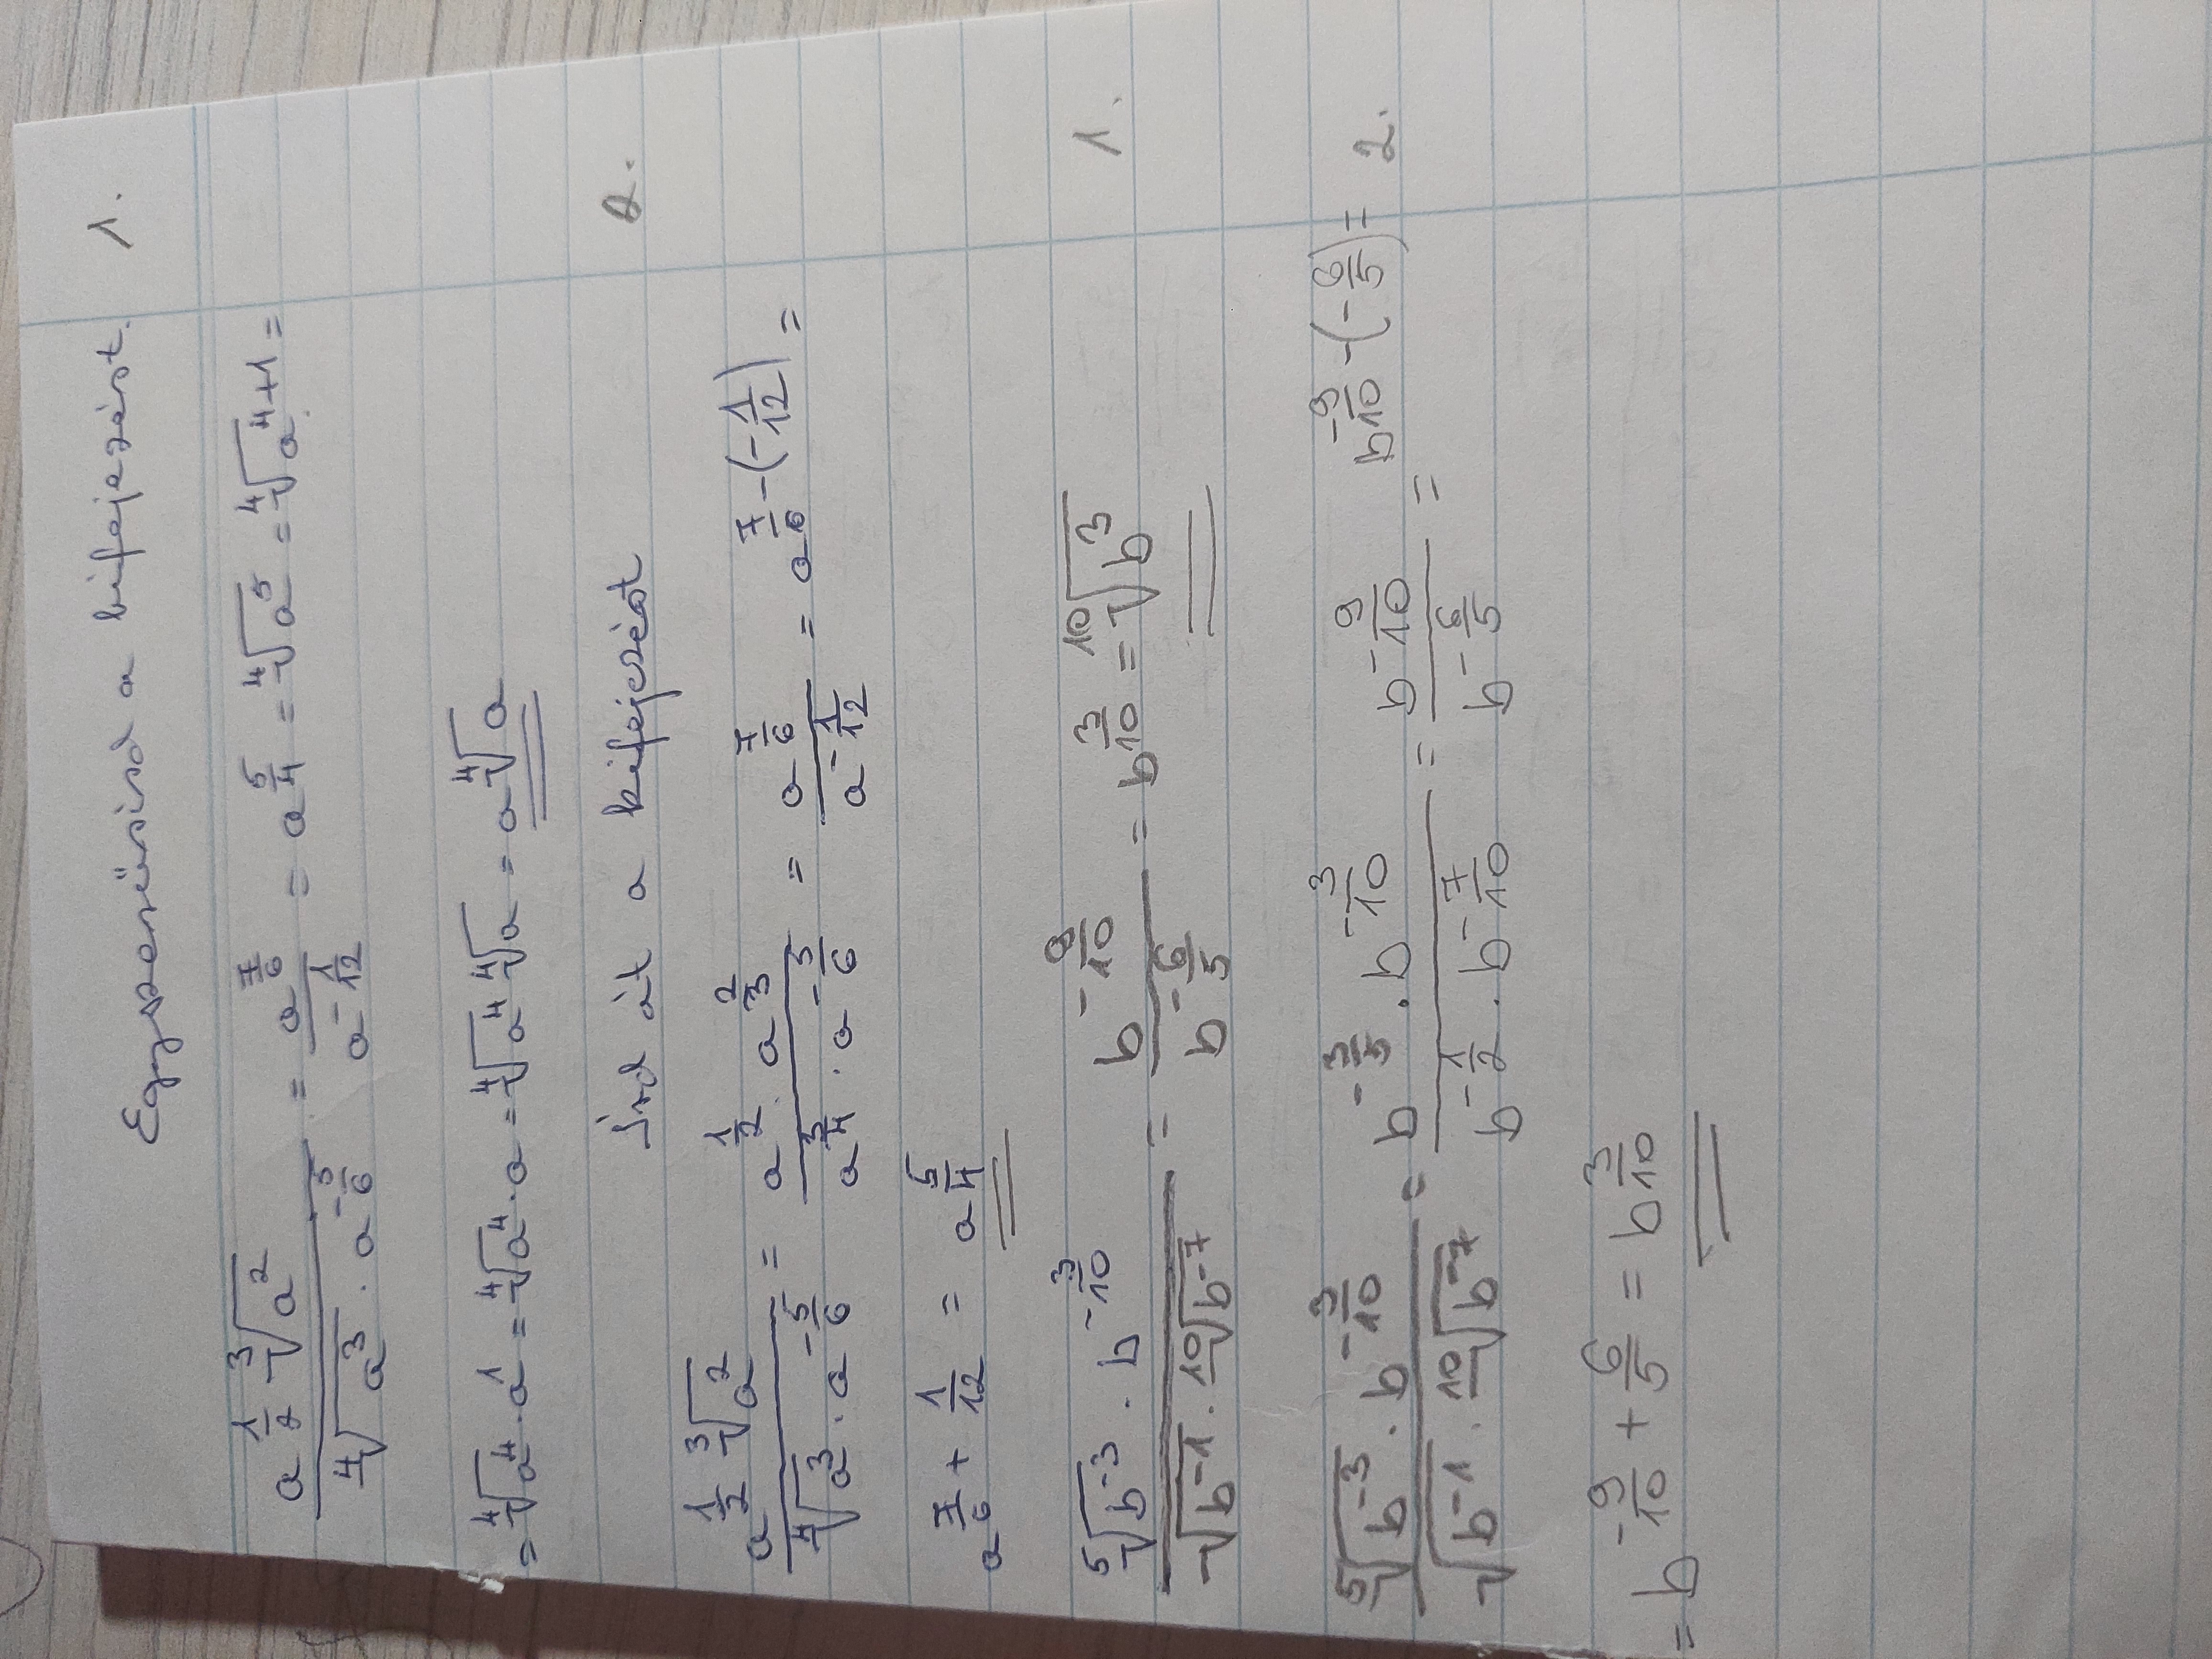 Egyszerűsísd a kifejezést. 1.
a^{\frac{1}{2}} · \sqrt[3]{a^2} / \sqrt[4]{a^3} · a^{-\frac{5}{6}} = a^{\frac{7}{6}} / a^{-\frac{1}{12}} = a^{\frac{5}{4}} = \sqrt[4]{a^5} = \sqrt[4]{a^{4+1}} =
= \sqrt[4]{a^4 · a^1} = \sqrt[4]{a^4 · a} = \sqrt[4]{a^4} \sqrt[4]{a} = a\sqrt[4]{a}
Írd át a kifejezést 2.
a^{\frac{1}{2}} · \sqrt[3]{a^2} / \sqrt[4]{a^3} · a^{-\frac{5}{6}} = a^{\frac{1}{2}} · a^{\frac{2}{3}} / a^{\frac{3}{4}} · a^{-\frac{5}{6}} = a^{\frac{7}{6}} / a^{-\frac{1}{12}} = a^{\frac{7}{6} - (-\frac{1}{12})} =
a^{\frac{7}{6} + \frac{1}{12}} = a^{\frac{5}{4}}
\sqrt[5]{b^{-3}} · b^{-\frac{3}{10}} / \sqrt{b^{-1}} · \sqrt[10]{b^{-7}} = b^{-\frac{9}{10}} / b^{-\frac{6}{5}} = b^{\frac{3}{10}} = \sqrt[10]{b^3} 1.
\sqrt[5]{b^{-3}} · b^{-\frac{3}{10}} / \sqrt{b^{-1}} · \sqrt[10]{b^{-7}} = b^{-\frac{3}{5}} · b^{-\frac{3}{10}} / b^{-\frac{1}{2}} · b^{-\frac{7}{10}} = b^{-\frac{9}{10}} / b^{-\frac{6}{5}} = b^{-\frac{9}{10} - (-\frac{6}{5})} = 2.
= b^{-\frac{9}{10} + \frac{6}{5}} = b^{\frac{3}{10}}